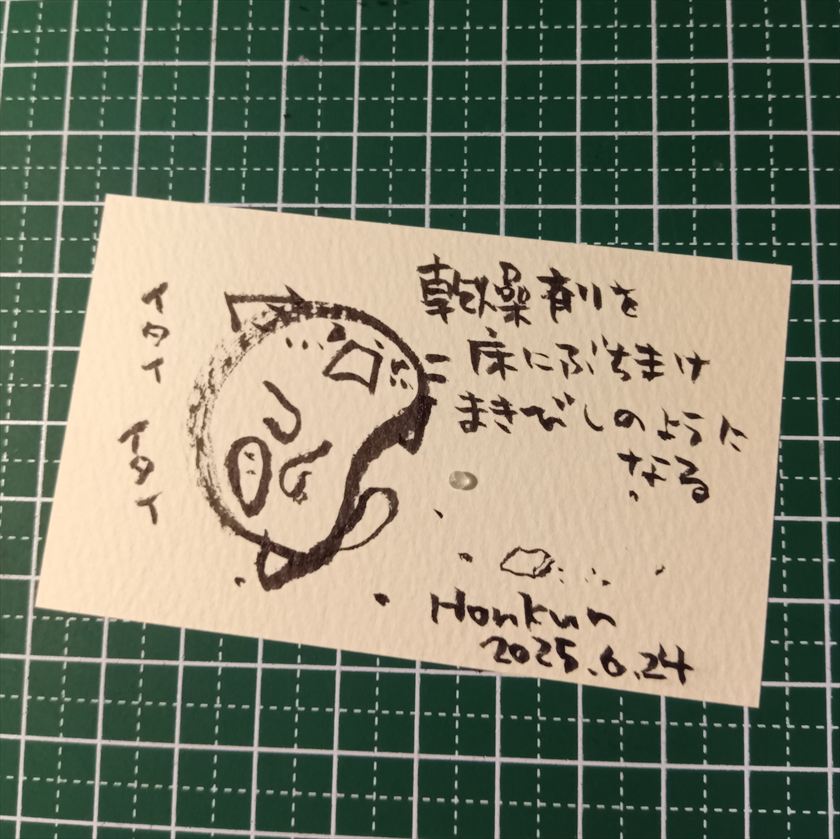 乾燥剤を
床にぶちまけ
まきびしのように
なる
イタイ
イタイ
Honkun
2025.6.24